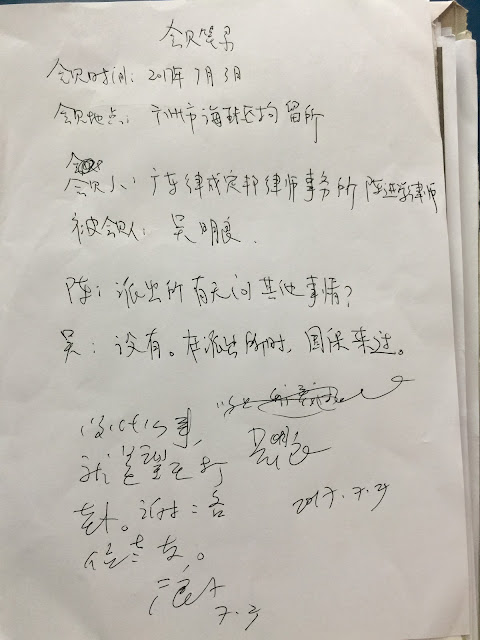 会见笔录
会见时间：2017年7月3日
会见地点：广州市海珠区拘留所
会见人：广东律成定邦律师事务所 陈进学律师
被会见人：吴明良.
陈：派出所有无问其他事情？
吴：没有。在派出所时，国保来过。
吴明良
2017.7.3
谢谢各
位
7.3